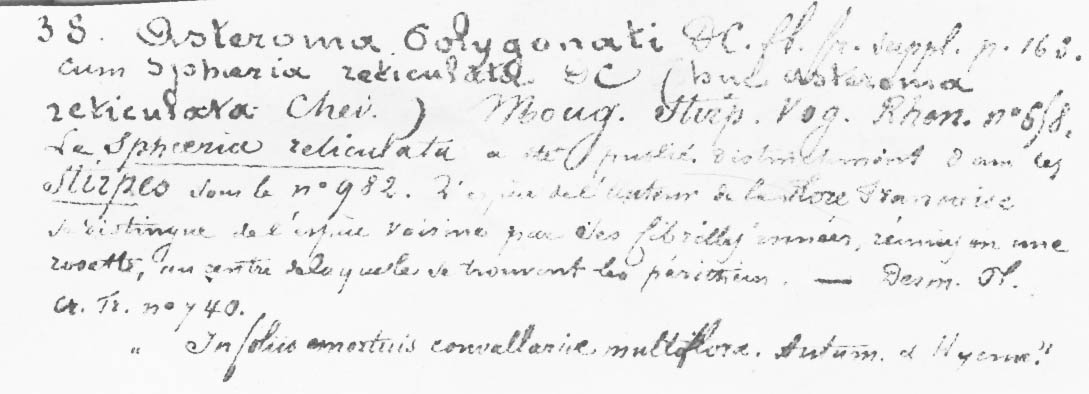 38. Asteroma Polygonati DC. fl. fr. suppl. p. 163.
cum Sphæria reticulata DC (huc Asteroma
reticulata Chev.) Moug. Stirp. Vog. Rhen. nº 658.
Le Sphæria reticulata a été publié distinctement dans les
Stirpes sous le nº 982. L'espèce de l'auteur de la Flore Française
se distingue de l'espèce voisine par des fibrilles innées, réunies en une
rosette, au centre de laquelle se trouvent les périthèces. — Desm. Pl.
Cr. Fr. nº 740.
" In foliis emortuis convallariæ multifloræ. Autum. et Hyeme."